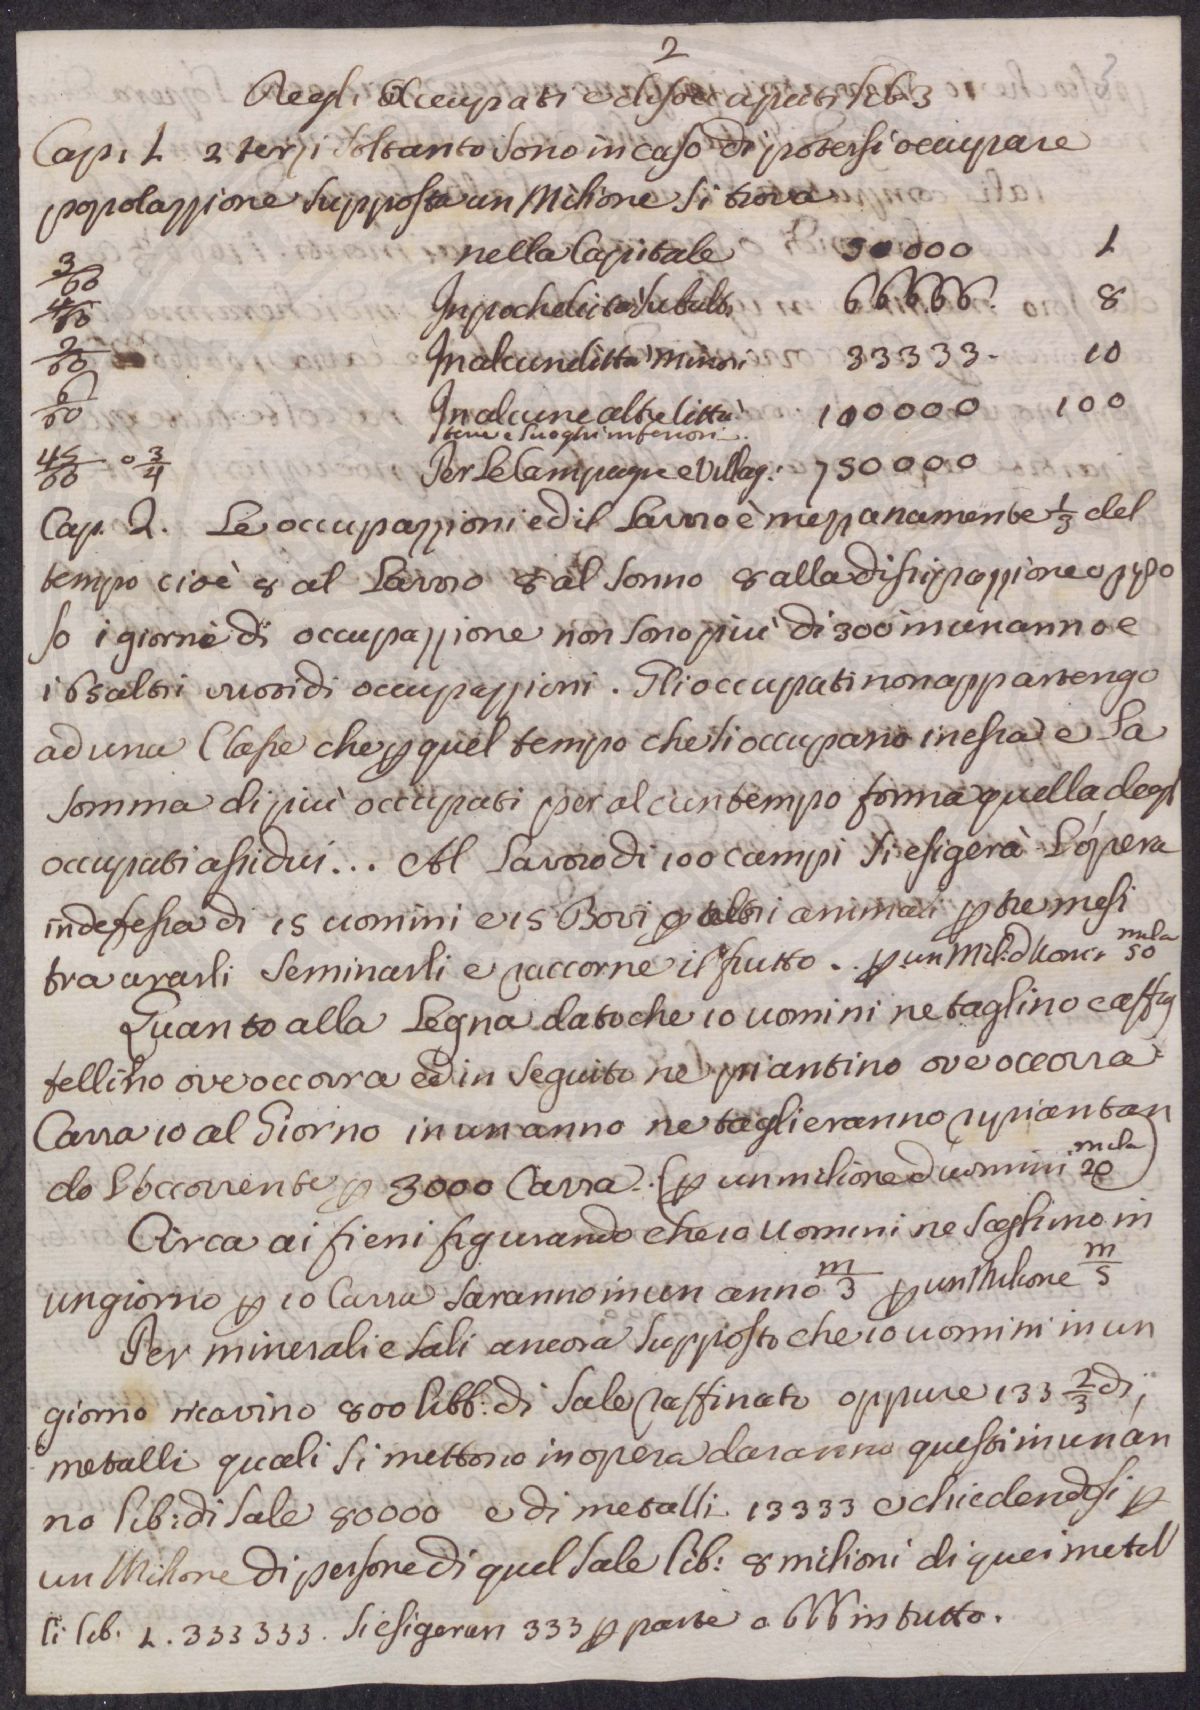 2
Degli Occupati e disoccupati Lib. 3
Cap. 1 2 terzi soltanto sono in caso di potersi occupare
popolazzione supposta un Milione si trova
nella Capitale 50000 1
3/60
4/60 In poche città subalt: 66666. 8
2/60 In alcune città minori 33333. 10
6/60 In alcune altre città 100000 100
terre e luoghi inferiori.
45/60 o 3/4 Per le Campagne e Villag: 750000
Cap. 2. Le occupazzioni ed il Lavoro è mezzanamente 1/3 del
tempo cioè 8 al Lavoro 8 al sonno 8 alla dissipazzione o ripo
so i giorni di occupazzione non sono più di 300 in un anno e
i 65 altri vuoti di occupazzioni. Gli occupati non appartengo
ad una Classe che p quel tempo che si occupano in essa e la
somma di più occupati per alcun tempo forma quella degl
occupati assidui... Al Lavoro di 100 campi si esigerà l'opera
indefessa di 15 uomini e 15 Bovi o altri animali p tre mesi
tra ararli seminarli e raccorne il frutto. p un Mil: d'uomi: mila 50
Quanto alla Legna dato che 10 uomini ne taglino e affa
stellino ove occorra ed in seguito ne piantino ove occorra
Carra 10 al Giorno in un anno ne taglieranno ripiantan
do l'occorrente p 3000 Carra. (p un milione d'uomini mila 20)
Circa ai fieni figurando che 10 uomini ne seghino in
un giorno p 10 Carra saranno in un anno m/3 p un Milione m/5
Per minerali e sali ancora supposto che 10 uomini in un
giorno ricavino 800 libb: di sale raffinato oppure 133 2/3 di
metalli quali si mettono in opera daranno questi in un án
no lib: di sale 80000 e di metalli 13333 e chiedendosi p
un Milione di persone di quel sale lib: 8 milioni di quei metal
li lib. 1.333333. si esigeran 333 p parte o 666 in tutto.